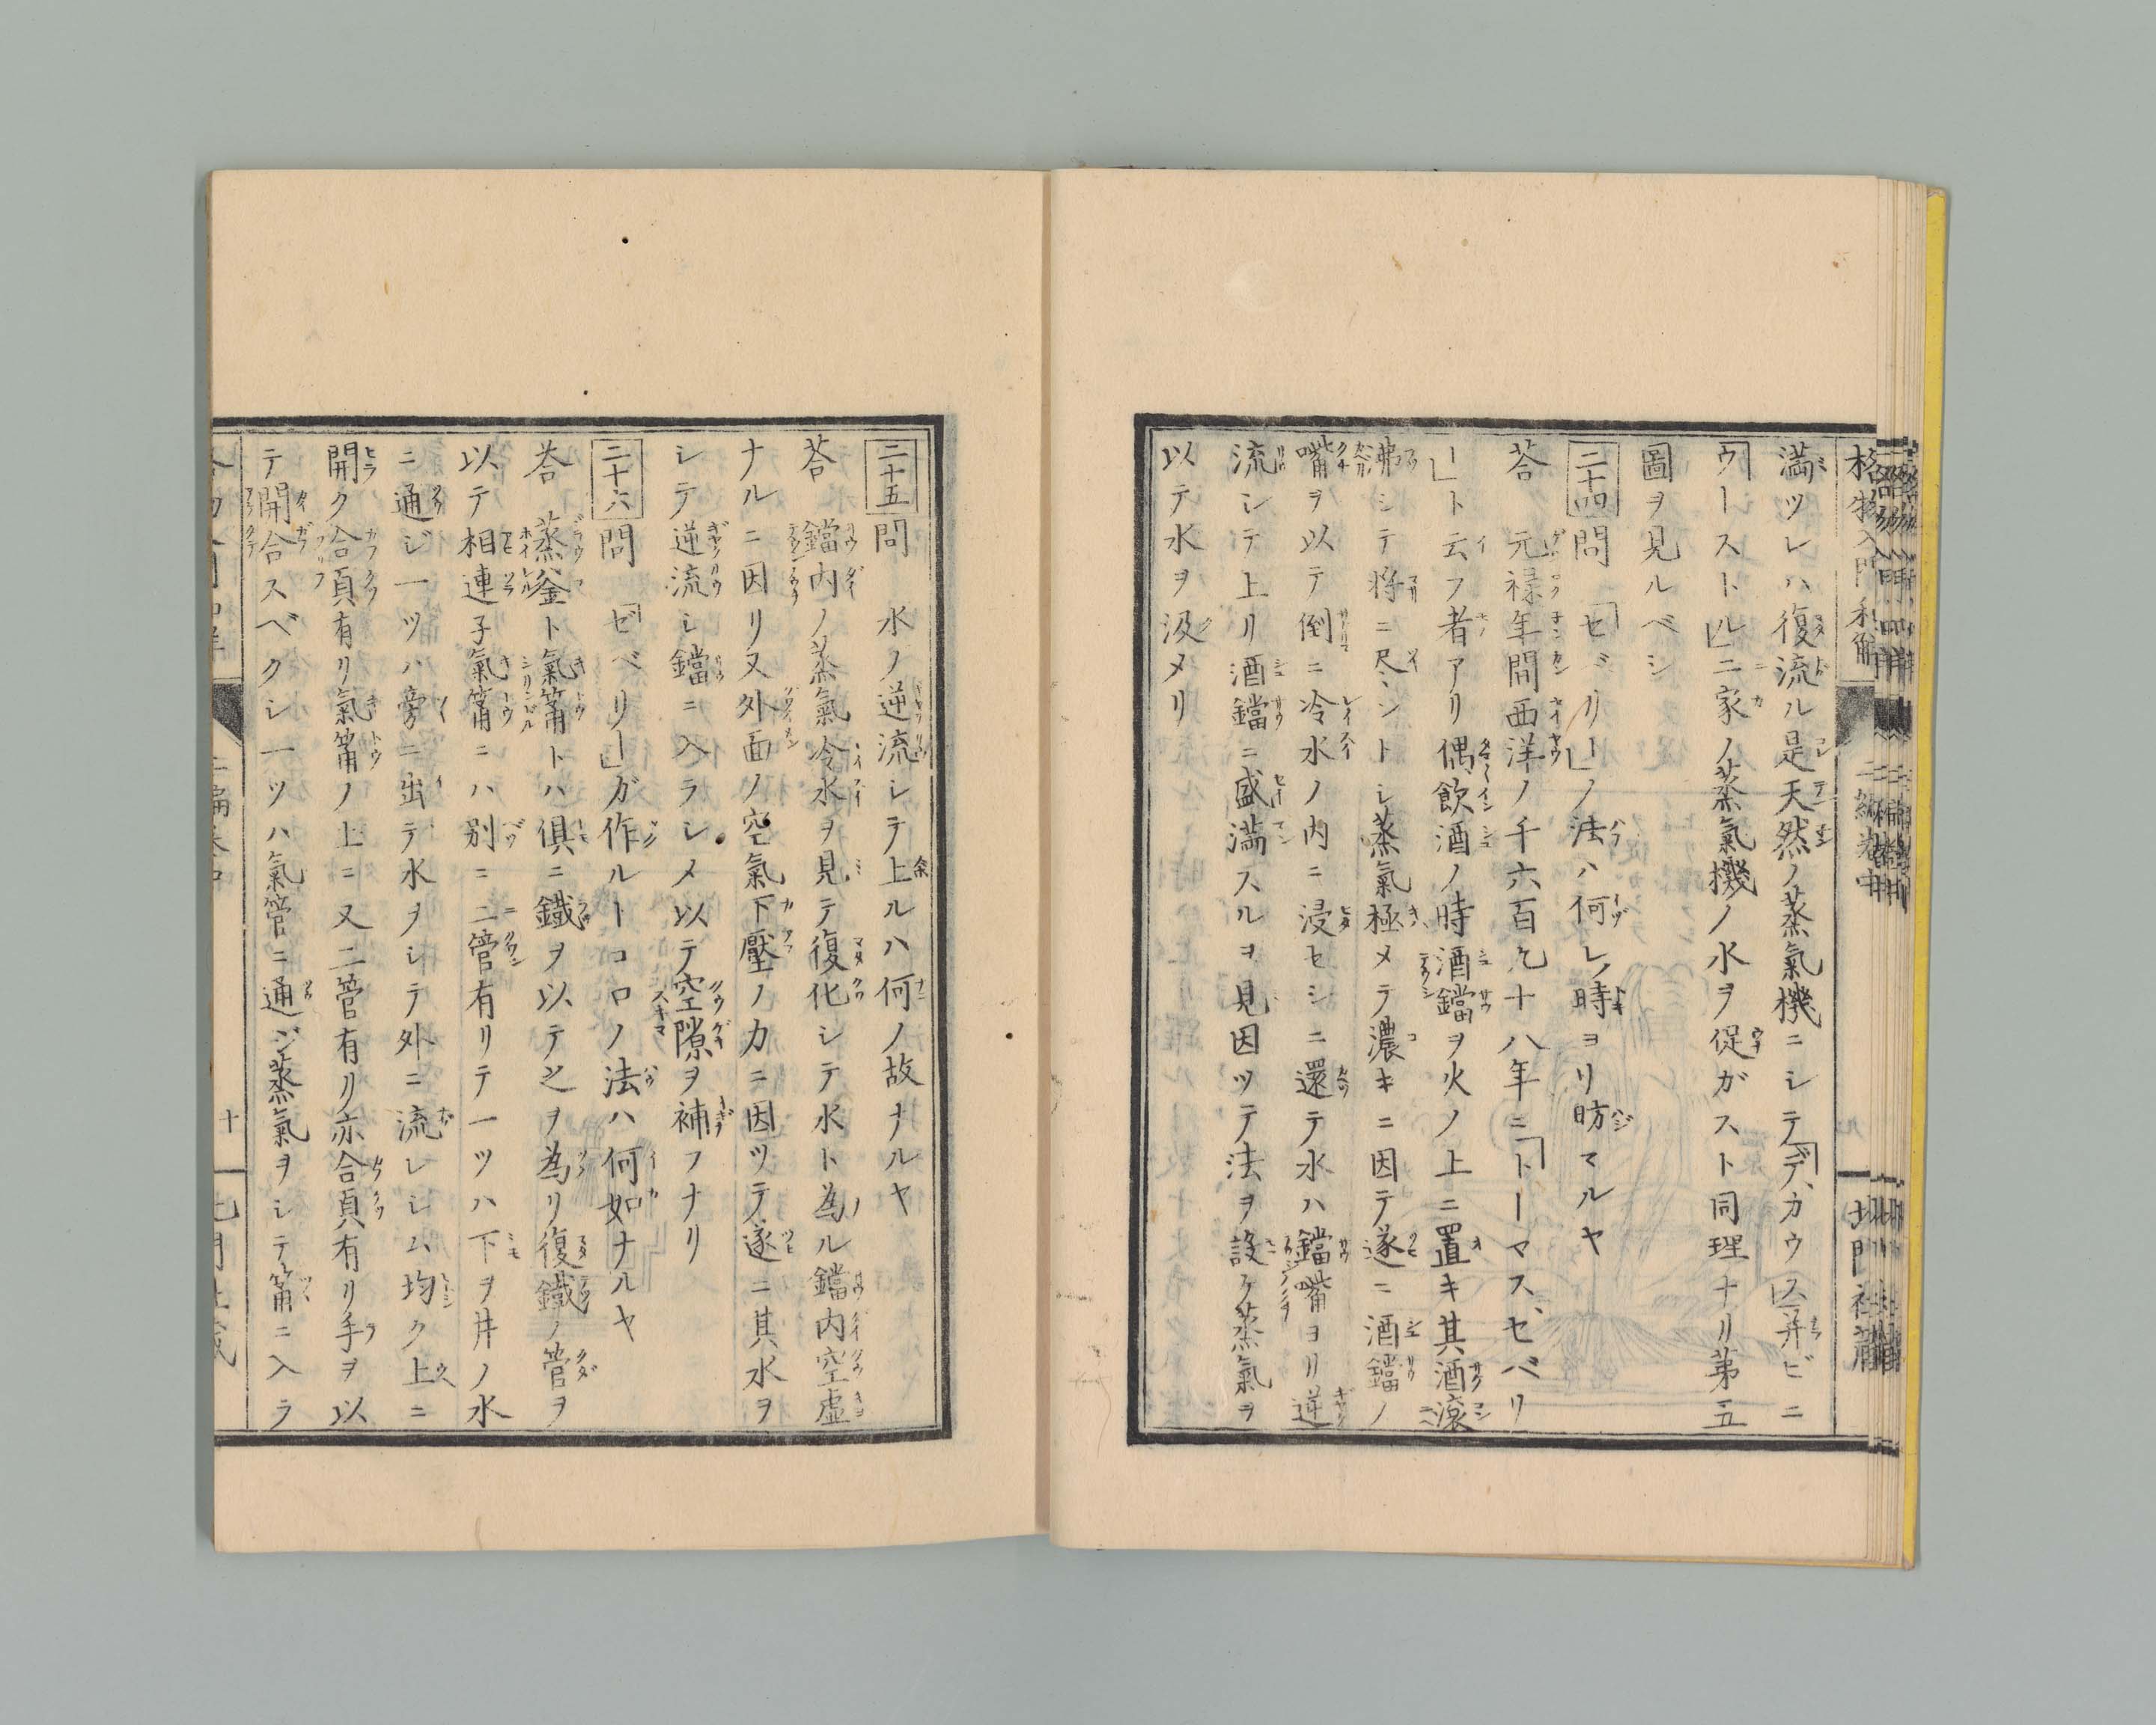 格物入門和解
二編卷中
北門社藏
満ツレハ復流ル是天然ノ蒸氣機ニシテ「デ、カウス」并ビニ
「ウーストル」二家ノ蒸氣機ノ水ヲ促ガスト同理ナリ苐五
圖ヲ見ルベシ
二十四問 「セベリー」ノ法ハ何レノ時ヨリ昉マルヤ
荅 元禄年間西洋ノ千六百九十八年ニ「トーマス、セバリ
ー」ト云フ者アリ偶飲酒ノ時酒鐺ヲ火ノ上ニ置キ其酒滚
沸シテ将ニ尽ントシ蒸氣極メテ濃キニ因テ遂ニ酒鐺ノ
嘴ヲ以テ倒ニ冷水ノ内ニ浸セシニ還テ水ハ鐺嘴ヨリ逆
流シテ上リ酒鐺ニ盛満スルヲ見因ツテ法ヲ設ケ蒸氣ヲ
以テ水ヲ汲メリ
二十五問 水ノ逆流シテ上ルハ何ノ故ナルヤ
荅 鐺内ノ蒸氣冷水ヲ見テ復化シテ水ト為ル鐺内空虚
ナルニ因リ又外面ノ空氣下壓ノ力ニ因ツテ遂ニ其水ヲ
シテ逆流シ鐺ニ入ラシメ以テ空隙ヲ補フナリ
二十六問 「ゼベリー」ガ作ルトコロノ法ハ何如ナルヤ
荅 蒸釜ト氣筩トハ俱ニ鐵ヲ以テ之ヲ為リ復鐵ノ管ヲ
以テ相連子氣筩ニハ别ニ二管有リテ一ツハ下モ井ノ水
ニ通ジ一ツハ旁ニ出テ水ヲシテ外ニ流レシム均ク上ニ
開ク合頁有リ氣筩ノ上ニ又二管有リ亦合頁有リ手ヲ以
テ開合スベクシ一ツハ氣管ニ通ジ蒸氣ヲシテ筩ニ入ラ
十